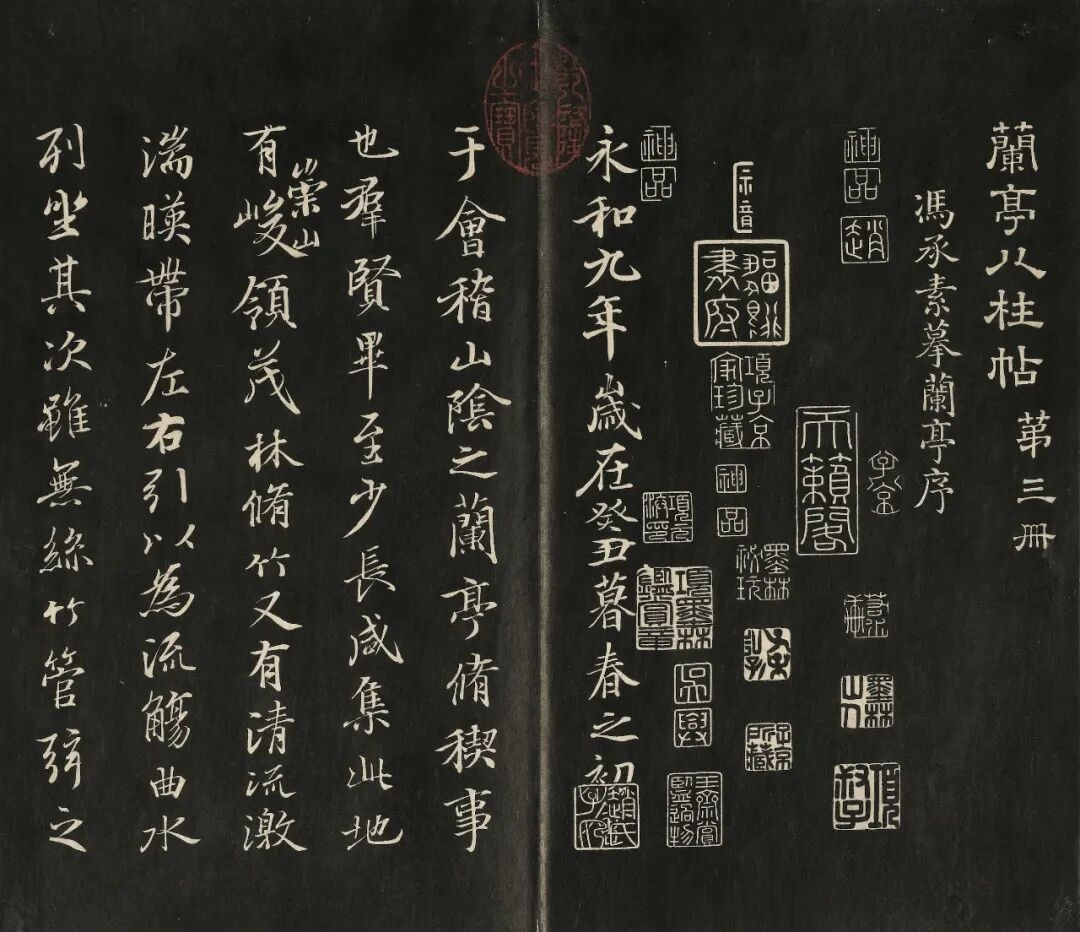 蘭亭八柱帖 第三冊
馮承素摹蘭亭序
神品
子京
天籟閣
墨林山人
項子京家珍藏
神品
墨林秘玩
神品
項元汴印
項墨林鑑賞章
吳興
永和九年歲在癸丑暮春之初
趙氏子昂
于會稽山陰之蘭亭脩稧事
也羣賢畢至少長咸集此地
有崇山峻領茂林脩竹又有清流激
湍暎帶左右引以為流觴曲水
列坐其次雖無絲竹管弦之